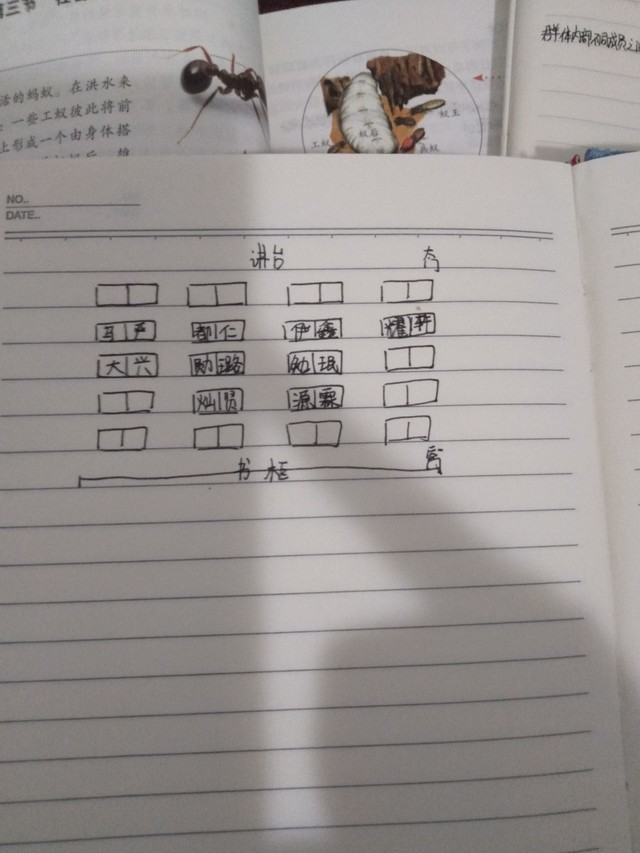 三节
活的蚂蚁。在洪水来
一些工蚁彼此将前
上形成一个由身体搭
蚁王
蚁后
工蚁
兵蚁
群体内部不同成员之
NO..
DATE..
讲台
马 严 都 仁 伊 鑫 耀 轩
大 兴 勋 璐 勉 珉
灿 贤 源 霖
书框 窗